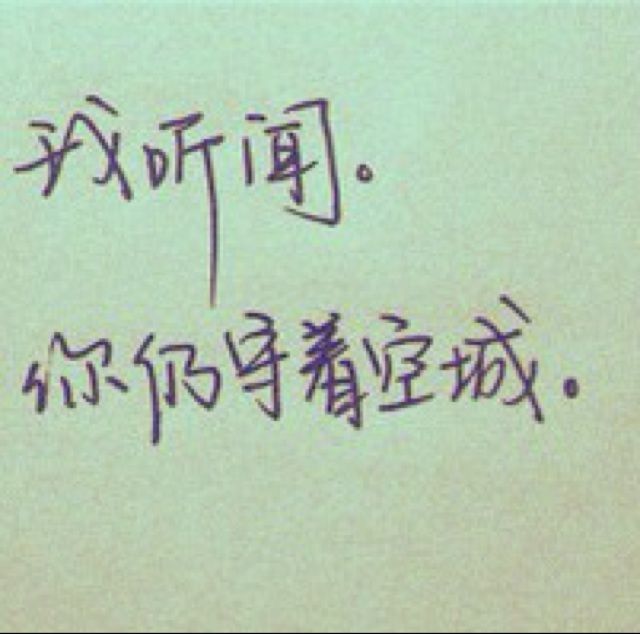 我听闻。
你仍守着空城。